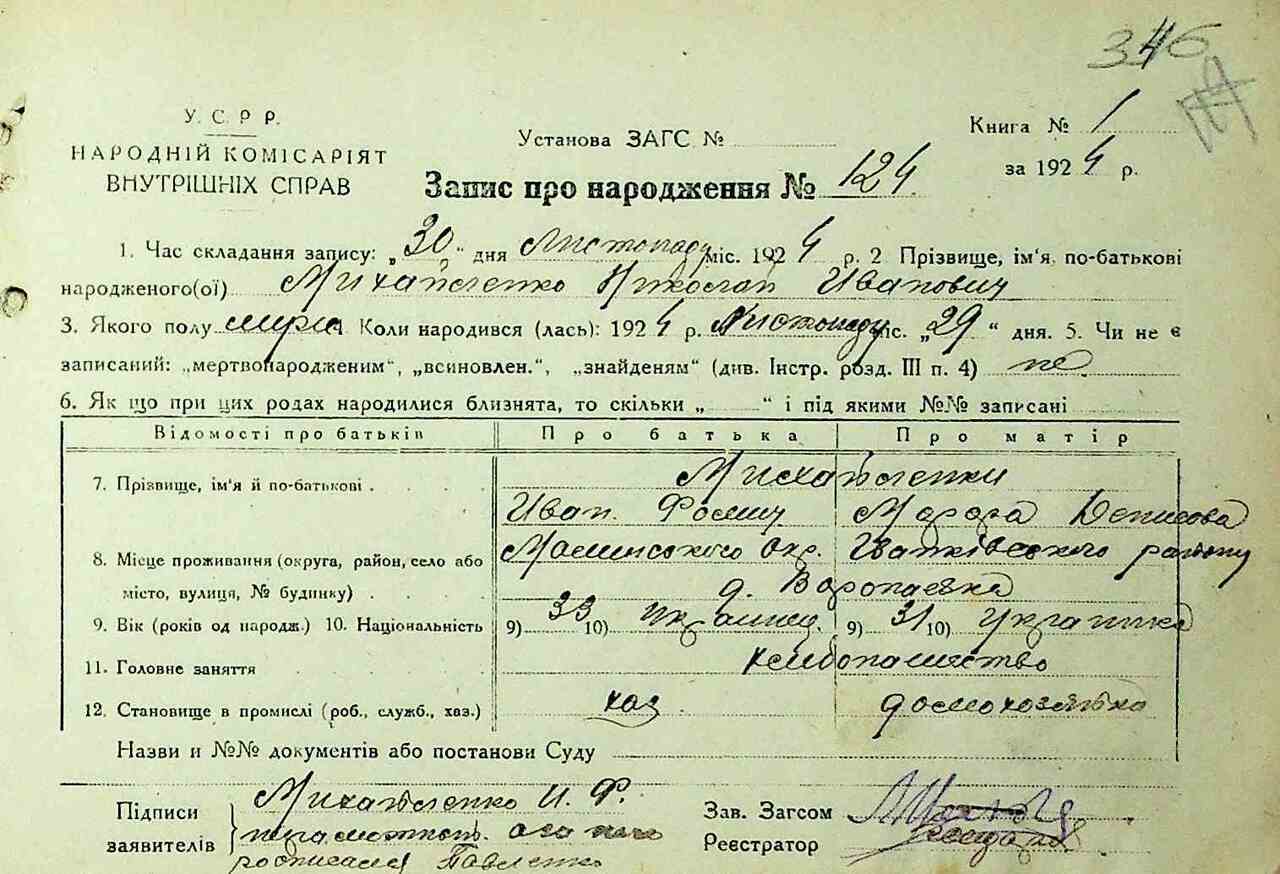 346
У. С. Р. Р.
НАРОДНІЙ КОМІСАРІЯТ
ВНУТРІШНІХ СПРАВ
Установа ЗАГС №
Книга № 1
за 1924 р.
Запис про народження № 124
1. Час складання запису: „30„ дня Листопаду міс. 1924 р. 2 Прізвище, ім'я, по-батькові
народженого(ої) Михайленко Николай Иванович
3. Якого полу 4. Коли народився (лась): 1924 р. Листопаду міс. „29“ дня. 5. Чи не є
записаний: „мертвонародженим“, „всиновлен.“, „знайденям“ (див. Інстр. розд. III п. 4) не
6. Як що при цих родах народилися близнята, то скільки „ “ і під якими №№ записані
Відомості про батьків Про батька Про матір
7. Прізвище, ім'я й по-батькові Михайленки
Иван Фомич Марфа Денисова
8. Місце проживання (округа, район, село або Малинського Окр. Іванківського району
місто, вулиця, № будинку) д. Воропаевка
9. Вік (років од народж.) 10. Національність 9) 33 10) Украинец 9) 31 10) Украинка
11. Головне заняття хлебопашество
12. Становище в промислі (роб., служб., хаз.) хаз. домохозяйка
Назви и №№ документів або постанови Суду
Підписи Михайленко И. Ф. Зав. Загсом
заявителів неграмотный Реєстратор
росписался Павленко